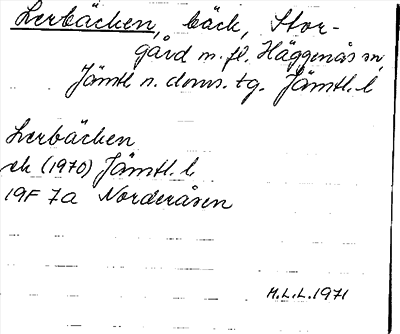 Lerbäcken, bäck, Stor-
gård m. fl. Häggenås sn,
Jämtl n. doms. tg. Jämtl. l
Lerbäcken
ek (1970) Jämtl. l
19F 7a Norderåsen
H.L.L. 1971